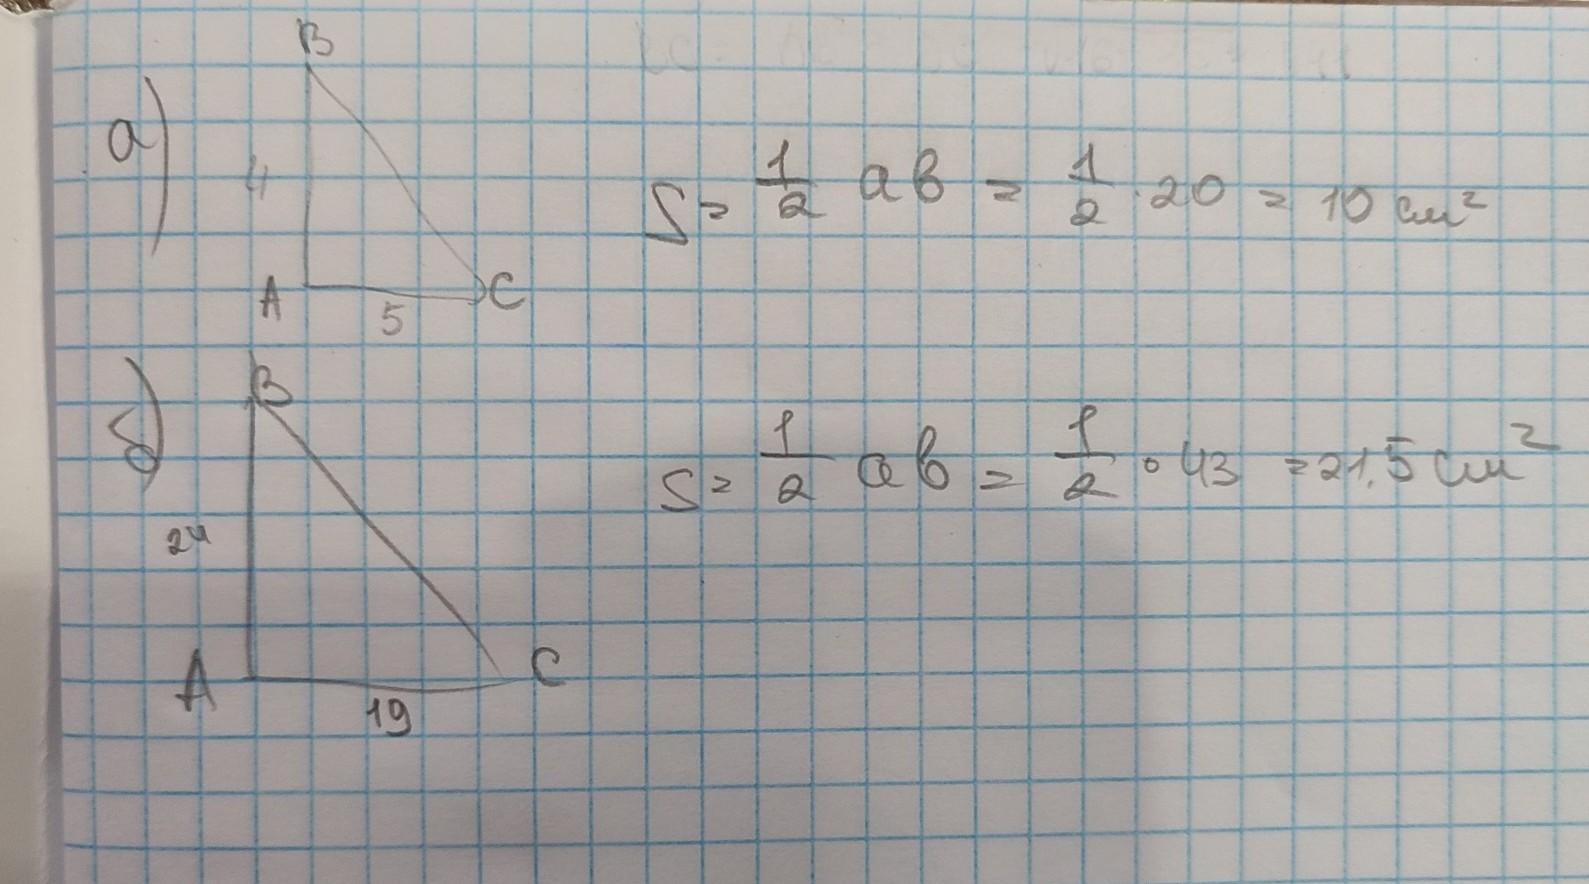 а)
B
4
A
5
C
S = 1/2 ab = 1/2 · 20 = 10 см²
б)
B
24
A
19
C
S = 1/2 ab = 1/2 · 43 = 21,5 см²